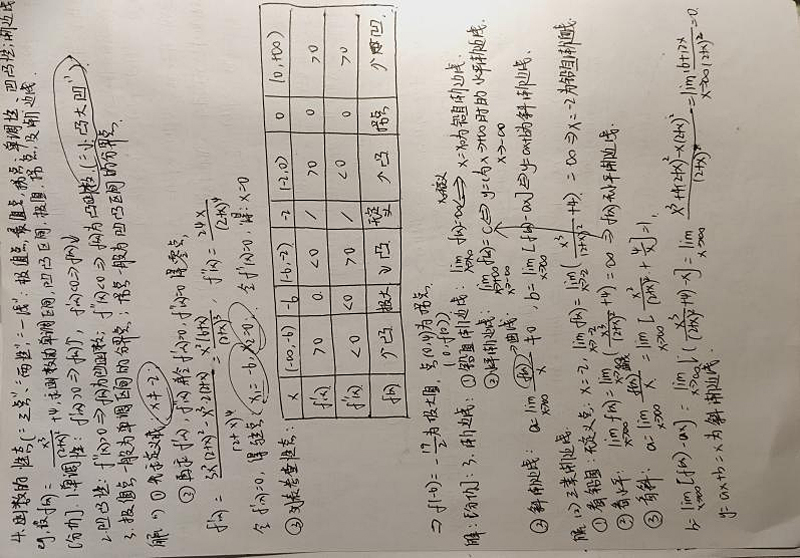 4. 函数的性态(="三点""两性""一线": 极值点, 最值点, 拐点; 单调性, 凹凸性; 渐近线.
eg. 设f(x)= x³/(2+x)² +4, 求函数的单调区间, 凹凸区间, 极值, 拐点, 及渐近线.
[分析]. 1. 单调性: f'(x)>0 ⇒ f(x)↑, f'(x)<0 ⇒ f(x)↓
2. 凹凸性: f''(x)>0 ⇒ f(x)为凹函数; f''(x)<0 ⇒ f(x)为凸函数 (="小凸大凹")
3. 极值点一般为单调区间的分界点; 拐点一般为凹凸区间的分界点.
解: (1) ① 先求定义域 x≠-2.
② 再求f'(x), f''(x) 解令f'(x)=0, f''(x)=0 得零点,
f'(x)= 3x²(2+x)²-x³·2(2+x) / (2+x)⁴ = x²(6+x)/(2+x)³, f''(x)= 24x/(2+x)⁴
令f'(x)=0, 得驻点 x₁=-6, x₂=0, 令f''(x)=0, 得: x=0
③ 列表考查性态:
x (-∞,-6) -6 (-6,-2) -2 (-2,0) 0 (0,+∞)
f'(x) >0 0 <0 / >0 0 >0
f''(x) <0 <0 / <0 0 >0
f(x) 凸 极大 凸 无定义 凸 拐点 凹
⇒ f(-6)= 为极大值, 点(0,4)为拐点.
(0, f(0))
解: [分析]: 3. 渐近线: ① 铅直渐近线: lim x→x₀ f(x)=∞ ⟺ x=x₀为铅直渐近线.
x₀无定义
② 水平渐近线: lim x→+∞ f(x)=C ⟺ y=C为x→+∞时的水平渐近线.
x→-∞ x→-∞
③ 斜渐近线: a=lim x→∞ f(x)/x ≠0, b=lim x→∞ [f(x)-ax] ⟺ y=ax+b为斜渐近线.
解: (2) 三类渐近线.
① 看铅直: 无定义点: x=-2, lim x→-2 f(x)=lim x→-2 (x³/(2+x)² +4)=∞ ⇒ x=-2为铅直渐近线.
② 看水平: lim x→∞ f(x)=lim x→∞ (x³/(2+x)² +4)=∞ ⇒ f(x)无水平渐近线.
③ 看斜: a=lim x→∞ f(x)/x = lim x→∞ [x²/(2+x)² + 4/x]=1,
b=lim x→∞ [f(x)-ax] = lim x→∞ [x³/(2+x)² +4-x] = lim x→∞ x³+4(2+x)²-x(2+x)² / (2+x)² = lim x→∞ 16+12x/(2+x)² = 0.
y=ax+b=x为斜渐近线.